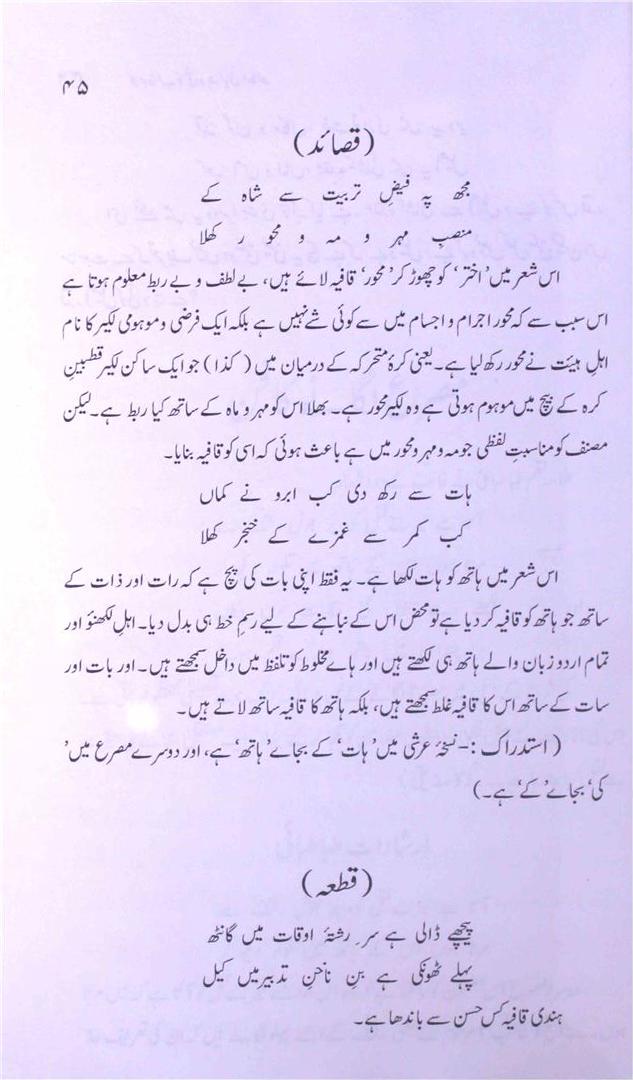 ۴۵
(قصائد)
مجھ پہ فیضِ تربیت سے شاہ کے
منصبِ مہر و مہ و محور کھلا
اس شعر میں 'اختر' کو چھوڑ کر 'محور' قافیہ لائے ہیں، بے لطف و بے ربط معلوم ہوتا ہے
اس سبب سے کہ محور اجرام و اجسام میں سے کوئی شے نہیں ہے بلکہ ایک فرضی و موہومی لکیر کا نام
اہلِ ہیئت نے محور رکھ لیا ہے۔ یعنی کرۂ متحرکہ کے درمیان میں (کذا) جو ایک ساکن لکیر قطبینِ
کرہ کے بیچ میں موہوم ہوتی ہے وہ لکیر محور ہے۔ بھلا اس کو مہر و ماہ کے ساتھ کیا ربط ہے۔ لیکن
مصنف کو مناسبتِ لفظی جو مہ و مہر و محور میں ہے باعث ہوئی کہ اسی کو قافیہ بنایا۔
ہات سے رکھ دی کب ابرو نے کماں
کب کمر سے غمزے کے خنجر کھلا
اس شعر میں ہاتھ کو ہات لکھا ہے۔ یہ فقط اپنی بات کی پچ ہے کہ رات اور ذات کے
ساتھ جو ہاتھ کو قافیہ کر دیا ہے تو محض اس کے نباہنے کے لیے رسمِ خط ہی بدل دیا۔ اہلِ لکھنؤ اور
تمام اردو زبان والے ہاتھ ہی لکھتے ہیں اور ہاے مخلوط کو تلفظ میں داخل سمجھتے ہیں۔ اور بات اور
سات کے ساتھ اس کا قافیہ غلط سمجھتے ہیں، بلکہ ہاتھ کا قافیہ ساتھ لاتے ہیں۔
(استدراک :- نسخۂ عرشی میں 'ہات' کے بجاے 'ہاتھ' ہے، اور دوسرے مصرع میں '
کی' بجاے 'کے' ہے۔)
(قطعہ)
پیچھے ڈالی ہے سرِ رشتۂ اوقات میں گانٹھ
پہلے ٹھونکی ہے بنِ ناخنِ تدبیر میں کیل
ہندی قافیہ کس حسن سے باندھا ہے۔